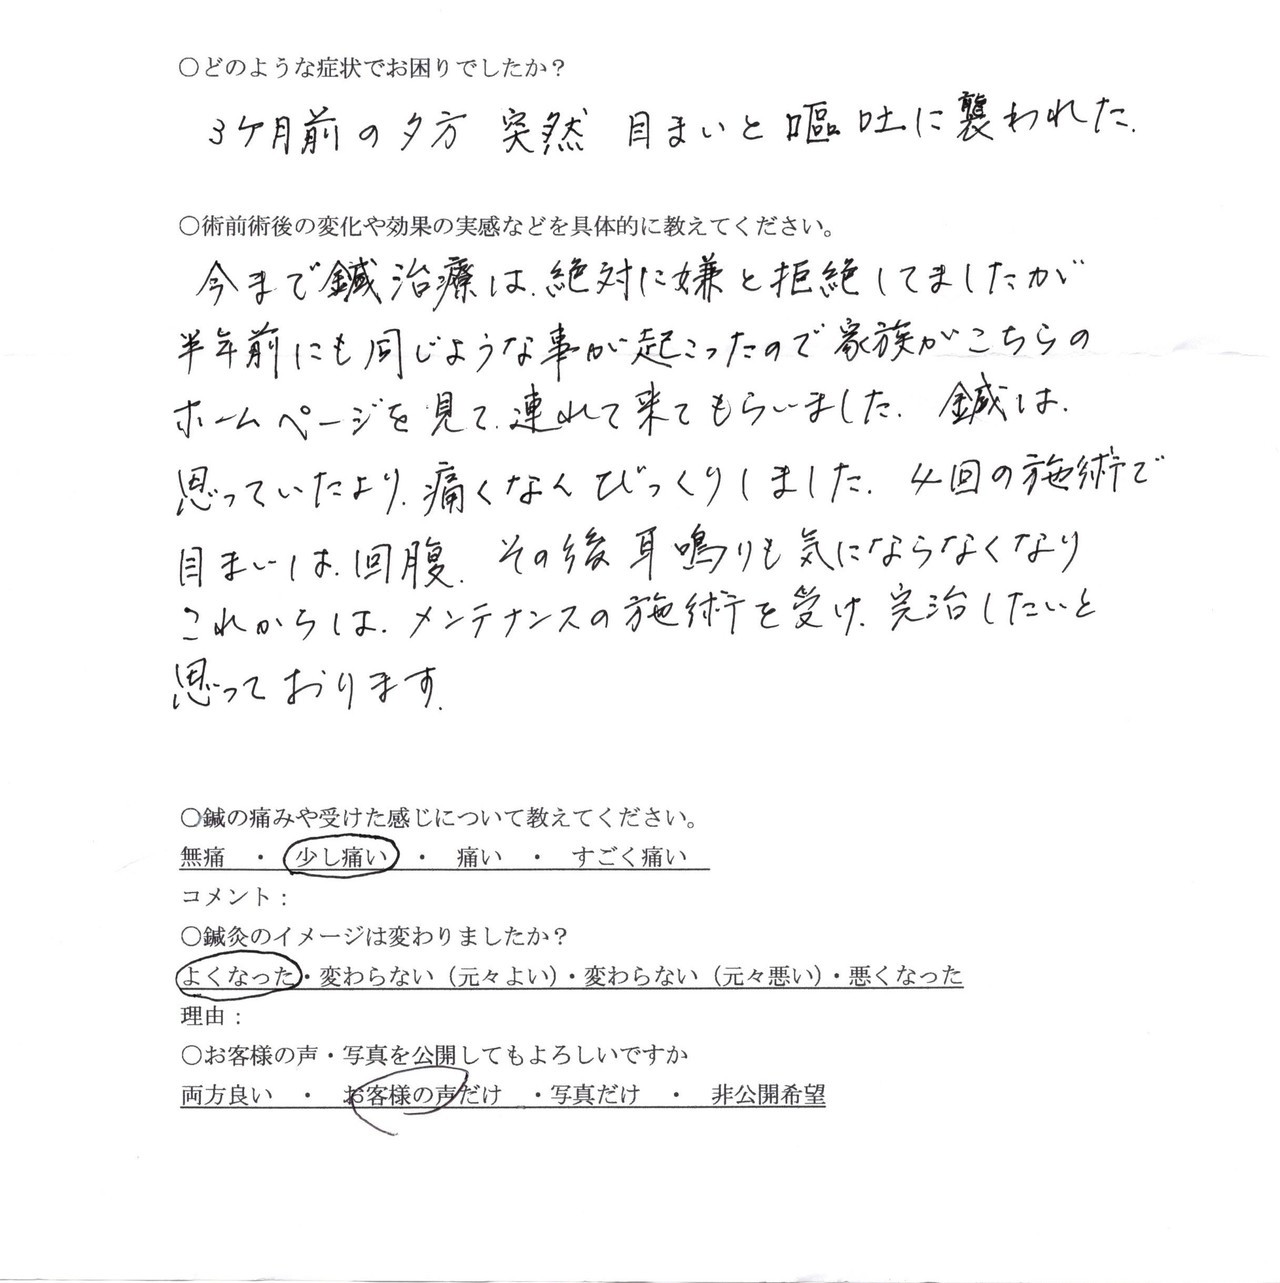 ○どのような症状でお困りでしたか？
3ケ月前の夕方 突然 目まいと嘔吐に襲われた.
○術前術後の変化や効果の実感などを具体的に教えてください。
今まで鍼治療は、絶対に嫌と拒絶してましたが
半年前にも同じような事が起こったので家族がこちらの
ホームページを見て、連れて来てもらいました. 鍼は、
思っていたより、痛くなんびっくりしました. 4回の施術で
目まいは、回腹. その後耳鳴りも気にならなくなり
これからは、メンテナンスの施術を受け、完治したいと
思っております.
○鍼の痛みや受けた感じについて教えてください。
無痛 ・ 少し痛い ・ 痛い ・ すごく痛い
コメント：
○鍼灸のイメージは変わりましたか？
よくなった・変わらない（元々よい）・変わらない（元々悪い）・悪くなった
理由：
○お客様の声・写真を公開してもよろしいですか
両方良い ・ お客様の声だけ ・写真だけ ・ 非公開希望